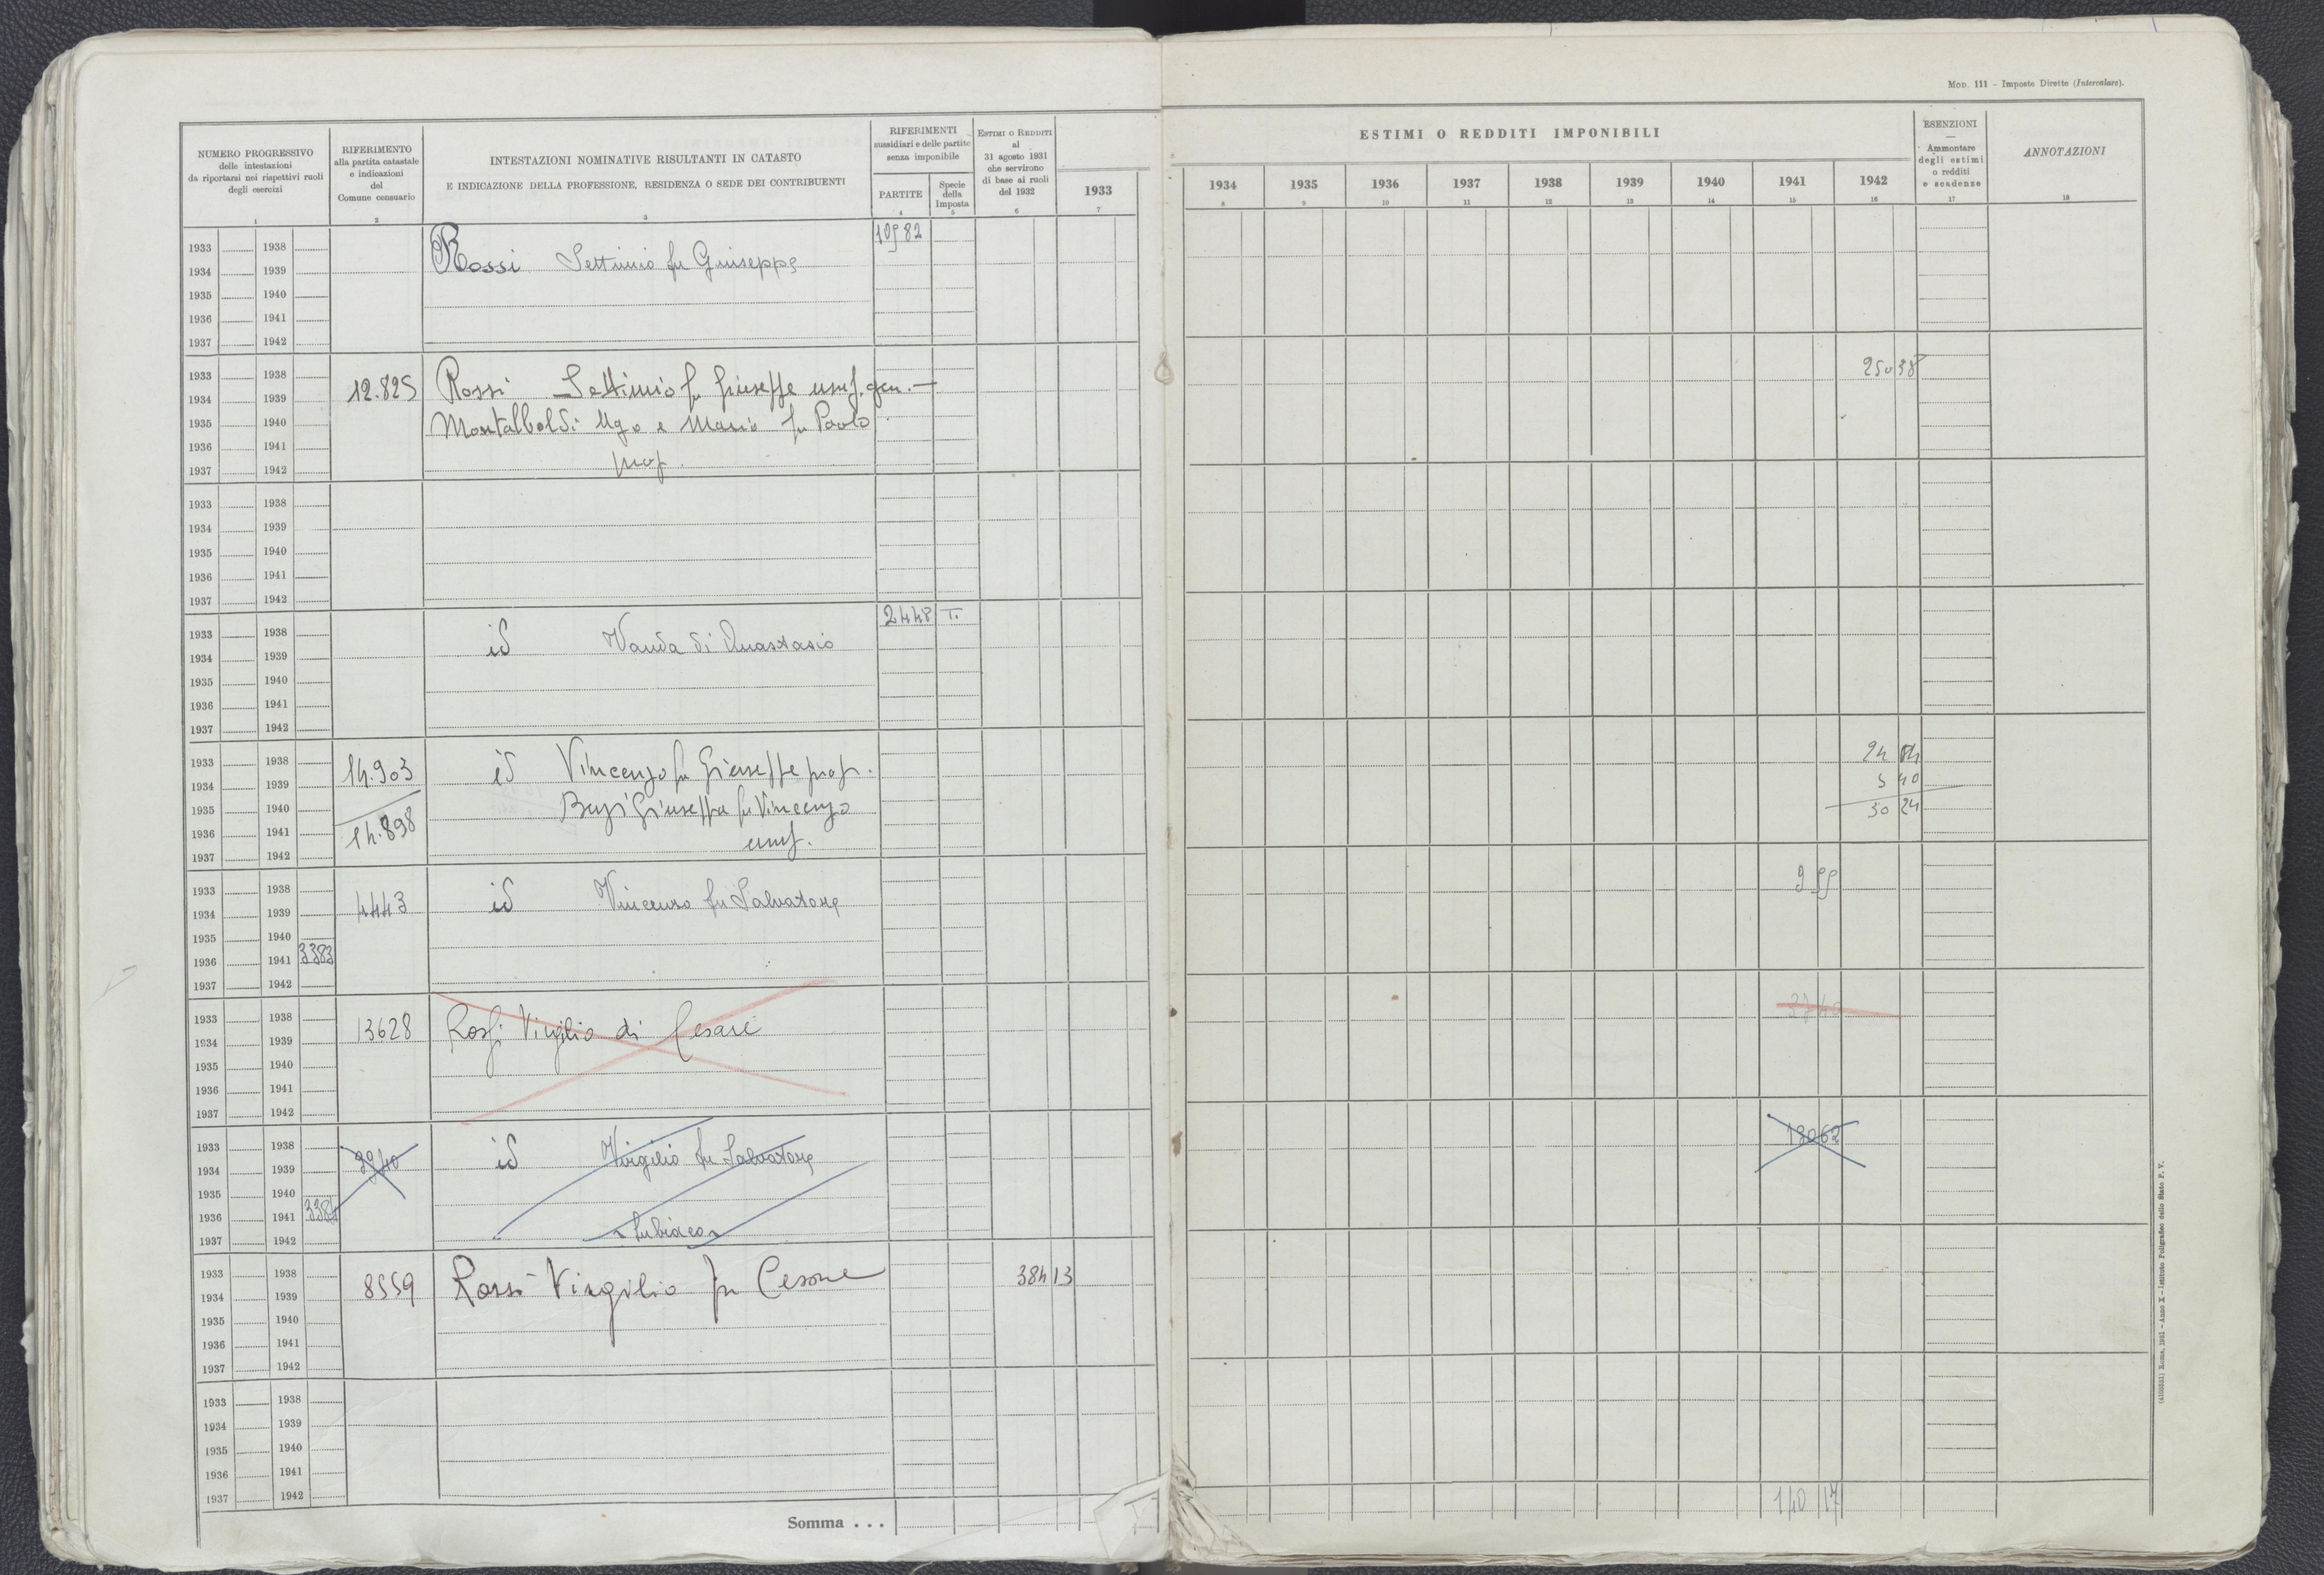 MOD. 111 - Imposte Dirette (Intercalare).
NUMERO PROGRESSIVO
delle intestazioni
da riportarsi nei rispettivi ruoli
degli esercizi
1
RIFERIMENTO
alla partita catastale
e indicazioni
del
Comune censuario
2
INTESTAZIONI NOMINATIVE RISULTANTI IN CATASTO
E INDICAZIONE DELLA PROFESSIONE, RESIDENZA O SEDE DEI CONTRIBUENTI
3
RIFERIMENTI
sussidiari e delle partite
senza imponibile
PARTITE
4
Specie
della
Imposta
5
ESTIMI O REDDITI
al
31 agosto 1931
che servirono
di base ai ruoli
del 1932
6
1933
7
ESTIMI O REDDITI IMPONIBILI
1934 1935 1936 1937 1938 1939 1940 1941 1942
8 9 10 11 12 13 14 15 16
ESENZIONI
—
Ammontare
degli estimi
o redditi
e scadenze
17
ANNOTAZIONI
18
1933 1938
1934 1939 Rossi Settimio fu Giuseppe
1935 1940
1936 1941
1937 1942
1933 1938
1934 1939 12.825 Rossi Settimio fu Giuseppe usuf. gen. —
1935 1940 Montalboldi Ugo e Mario fu Paolo
1936 1941
1937 1942 prop.
1933 1938
1934 1939
1935 1940
1936 1941
1937 1942
2448 T.
1933 1938
1934 1939 id Vanda di Anastasio
1935 1940
1936 1941
1937 1942
1933 1938 14.903 id Vincenzo fu Giuseppe prop.
1934 1939 5 40
1935 1940 fu Vincenzo 30 24
1936 1941 14.898
1937 1942 usuf.
1933 1938
1934 1939 4443 id Vincenzo fu Salvatore
1935 1940
1936 1941 3383
1937 1942
1933 1938
1934 1939 13628 Rossi Virgilio di Cesare
1935 1940
1936 1941
1937 1942
1933 1938 13062
1934 1939 id Virgilio fu Salvatore
1935 1940
1936 1941
1937 1942 Subiaco
1933 1938
1934 1939 8559 Rossi Virgilio fu Cesare 384 13
1935 1940
1936 1941
1937 1942
1933 1938
1934 1939
1935 1940
1936 1941
1937 1942
Somma . . . 140 17
Roma, 1931 - Anno X - Istituto Poligrafico dello Stato P. V.